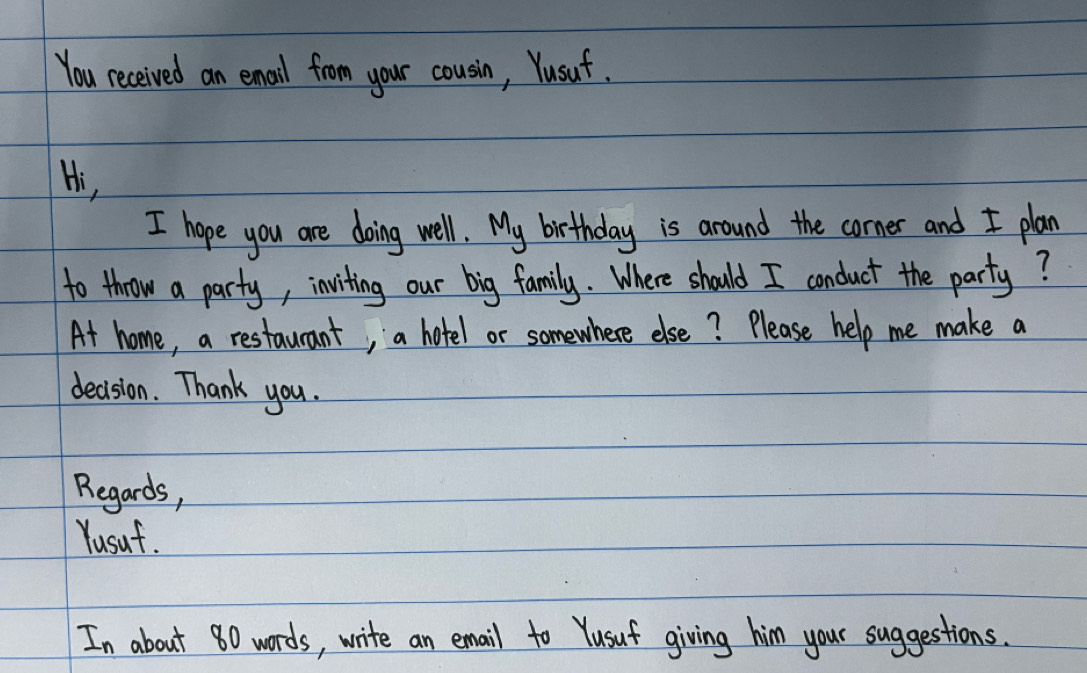 You received an email from your cousin, Yusuf.
Hi,
I hope you are doing well. My birthday is around the corner and I plan
to throw a party, inviting our big family. Where should I conduct the party?
At home, a restaurant, a hotel or somewhere else? Please help me make a
decision. Thank you.
Regards,
Yusuf.
In about 80 words, write an email to Yusuf giving him your suggestions.